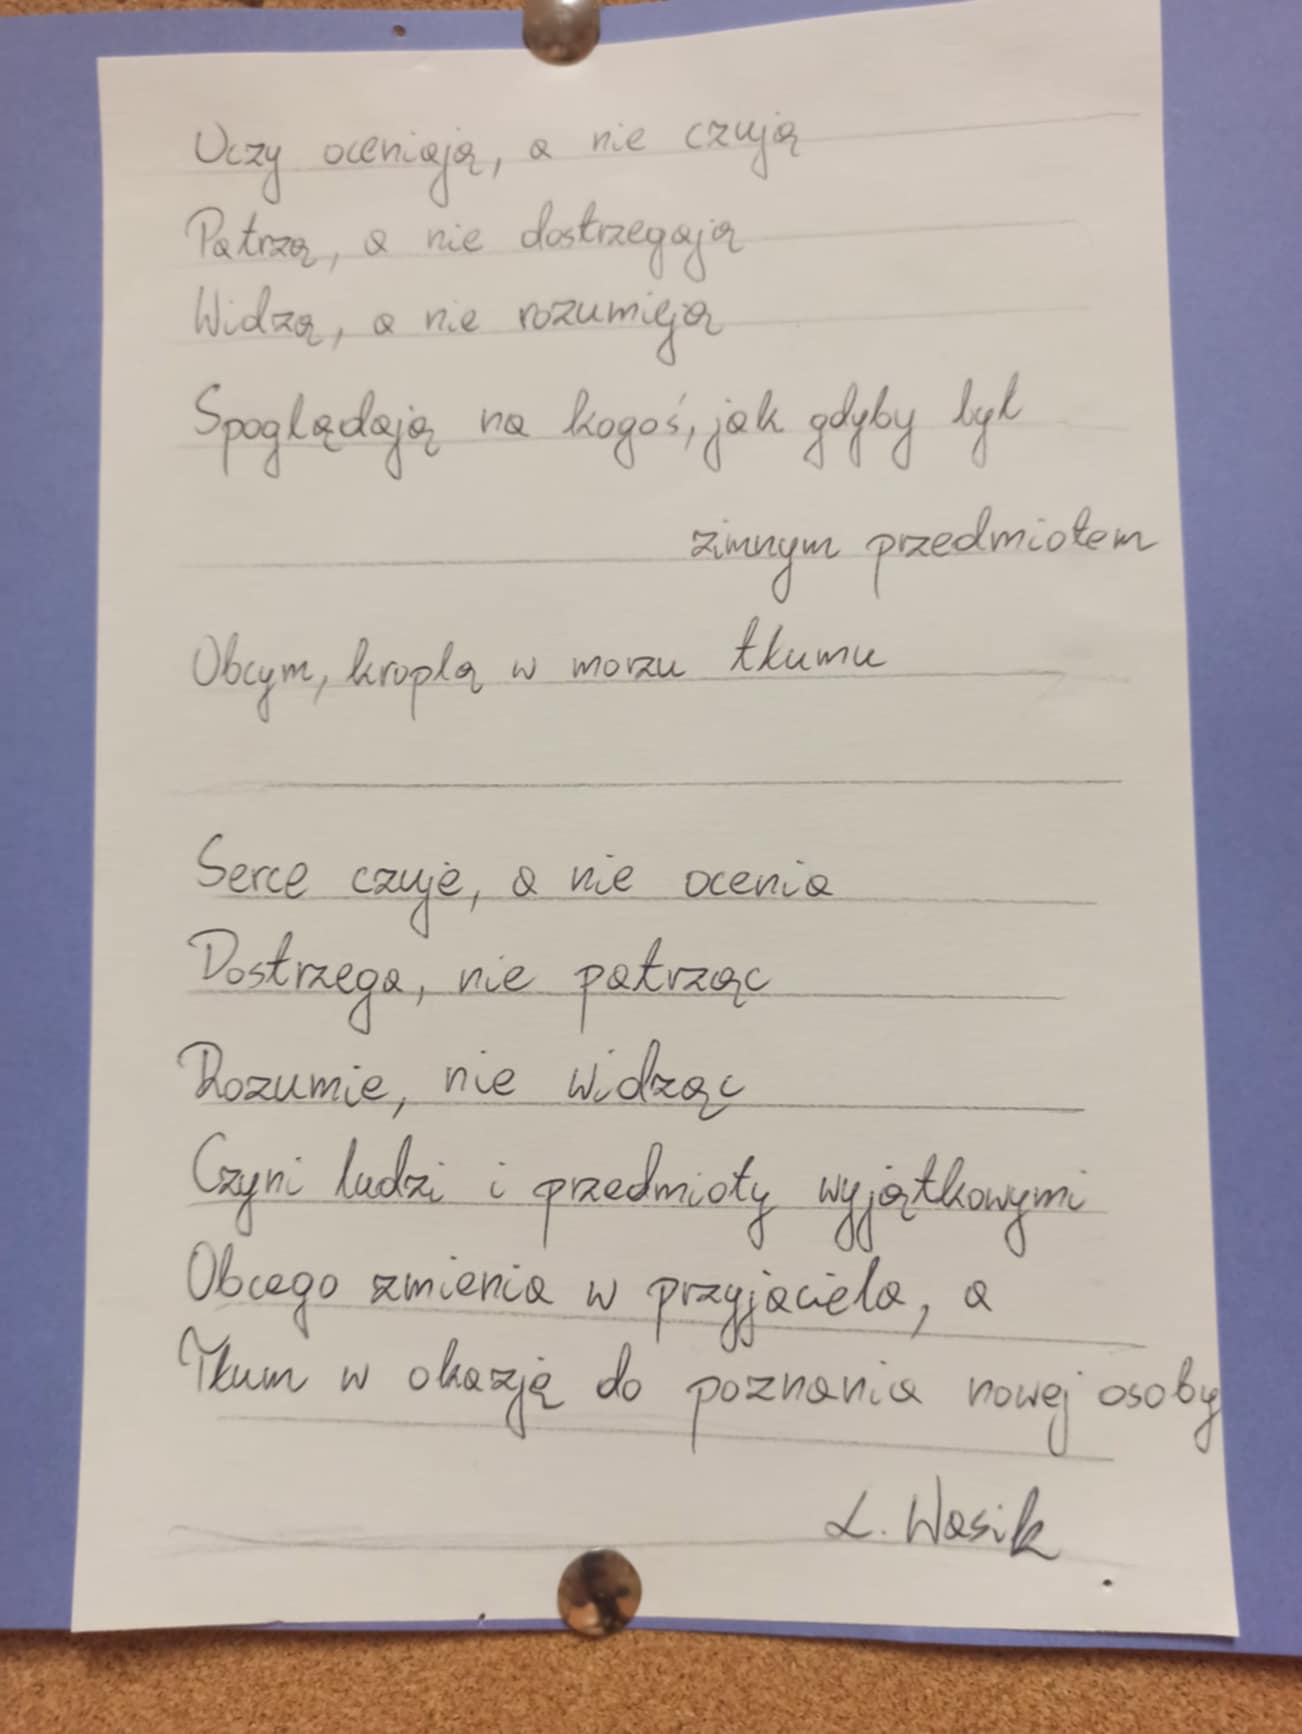 Oczy oceniają, a nie czują
Patrzą, a nie dostrzegają
Widzą, a nie rozumieją
Spoglądają na kogoś, jak gdyby był
zimnym przedmiotem
Obcym, kroplą w morzu tłumu
Serce czuje, a nie ocenia
Dostrzega, nie patrząc
Rozumie, nie widząc
Czyni ludzi i przedmioty wyjątkowymi
Obcego zmienia w przyjaciela, a
Tłum w okazję do poznania nowej osoby
Ł. Wasik